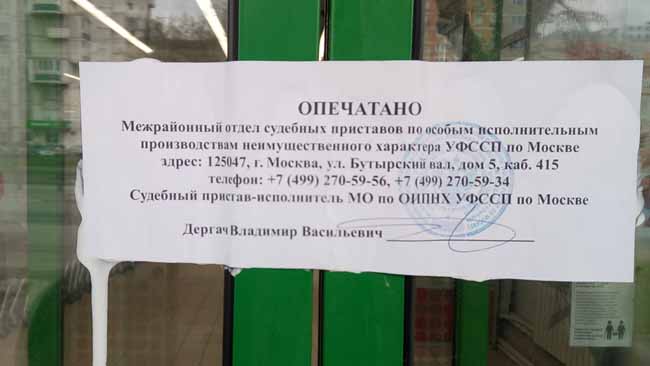 ОПЕЧАТАНО
Межрайонный отдел судебных приставов по особым исполнительным
производствам неимущественного характера УФССП по Москве
адрес: 125047, г. Москва, ул. Бутырский вал, дом 5, каб. 415
телефон: +7 (499) 270-59-56, +7 (499) 270-59-34
Судебный пристав-исполнитель МО по ОИПНХ УФССП по Москве
Дергач Владимир Васильевич